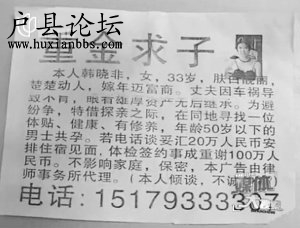 户县论坛
www.huxianbbs.com
重金求子
本人韩晓非，女，33岁，肤白靓丽，
楚楚动人，嫁年迈富商。丈夫因车祸导
致不育，眼看雄厚资产无后继承。为避
纷争，特借探亲之际，在同地寻找一位
体贴、健康、有修养，年龄50岁以下的
男士共孕。若电话谈妥汇20万人民币安
排住宿见面，体检签约事成重谢100万人
民币。不影响家庭，保密，本广告由律
师事务所代理。（本人倾谈，不诚
电话：15179333